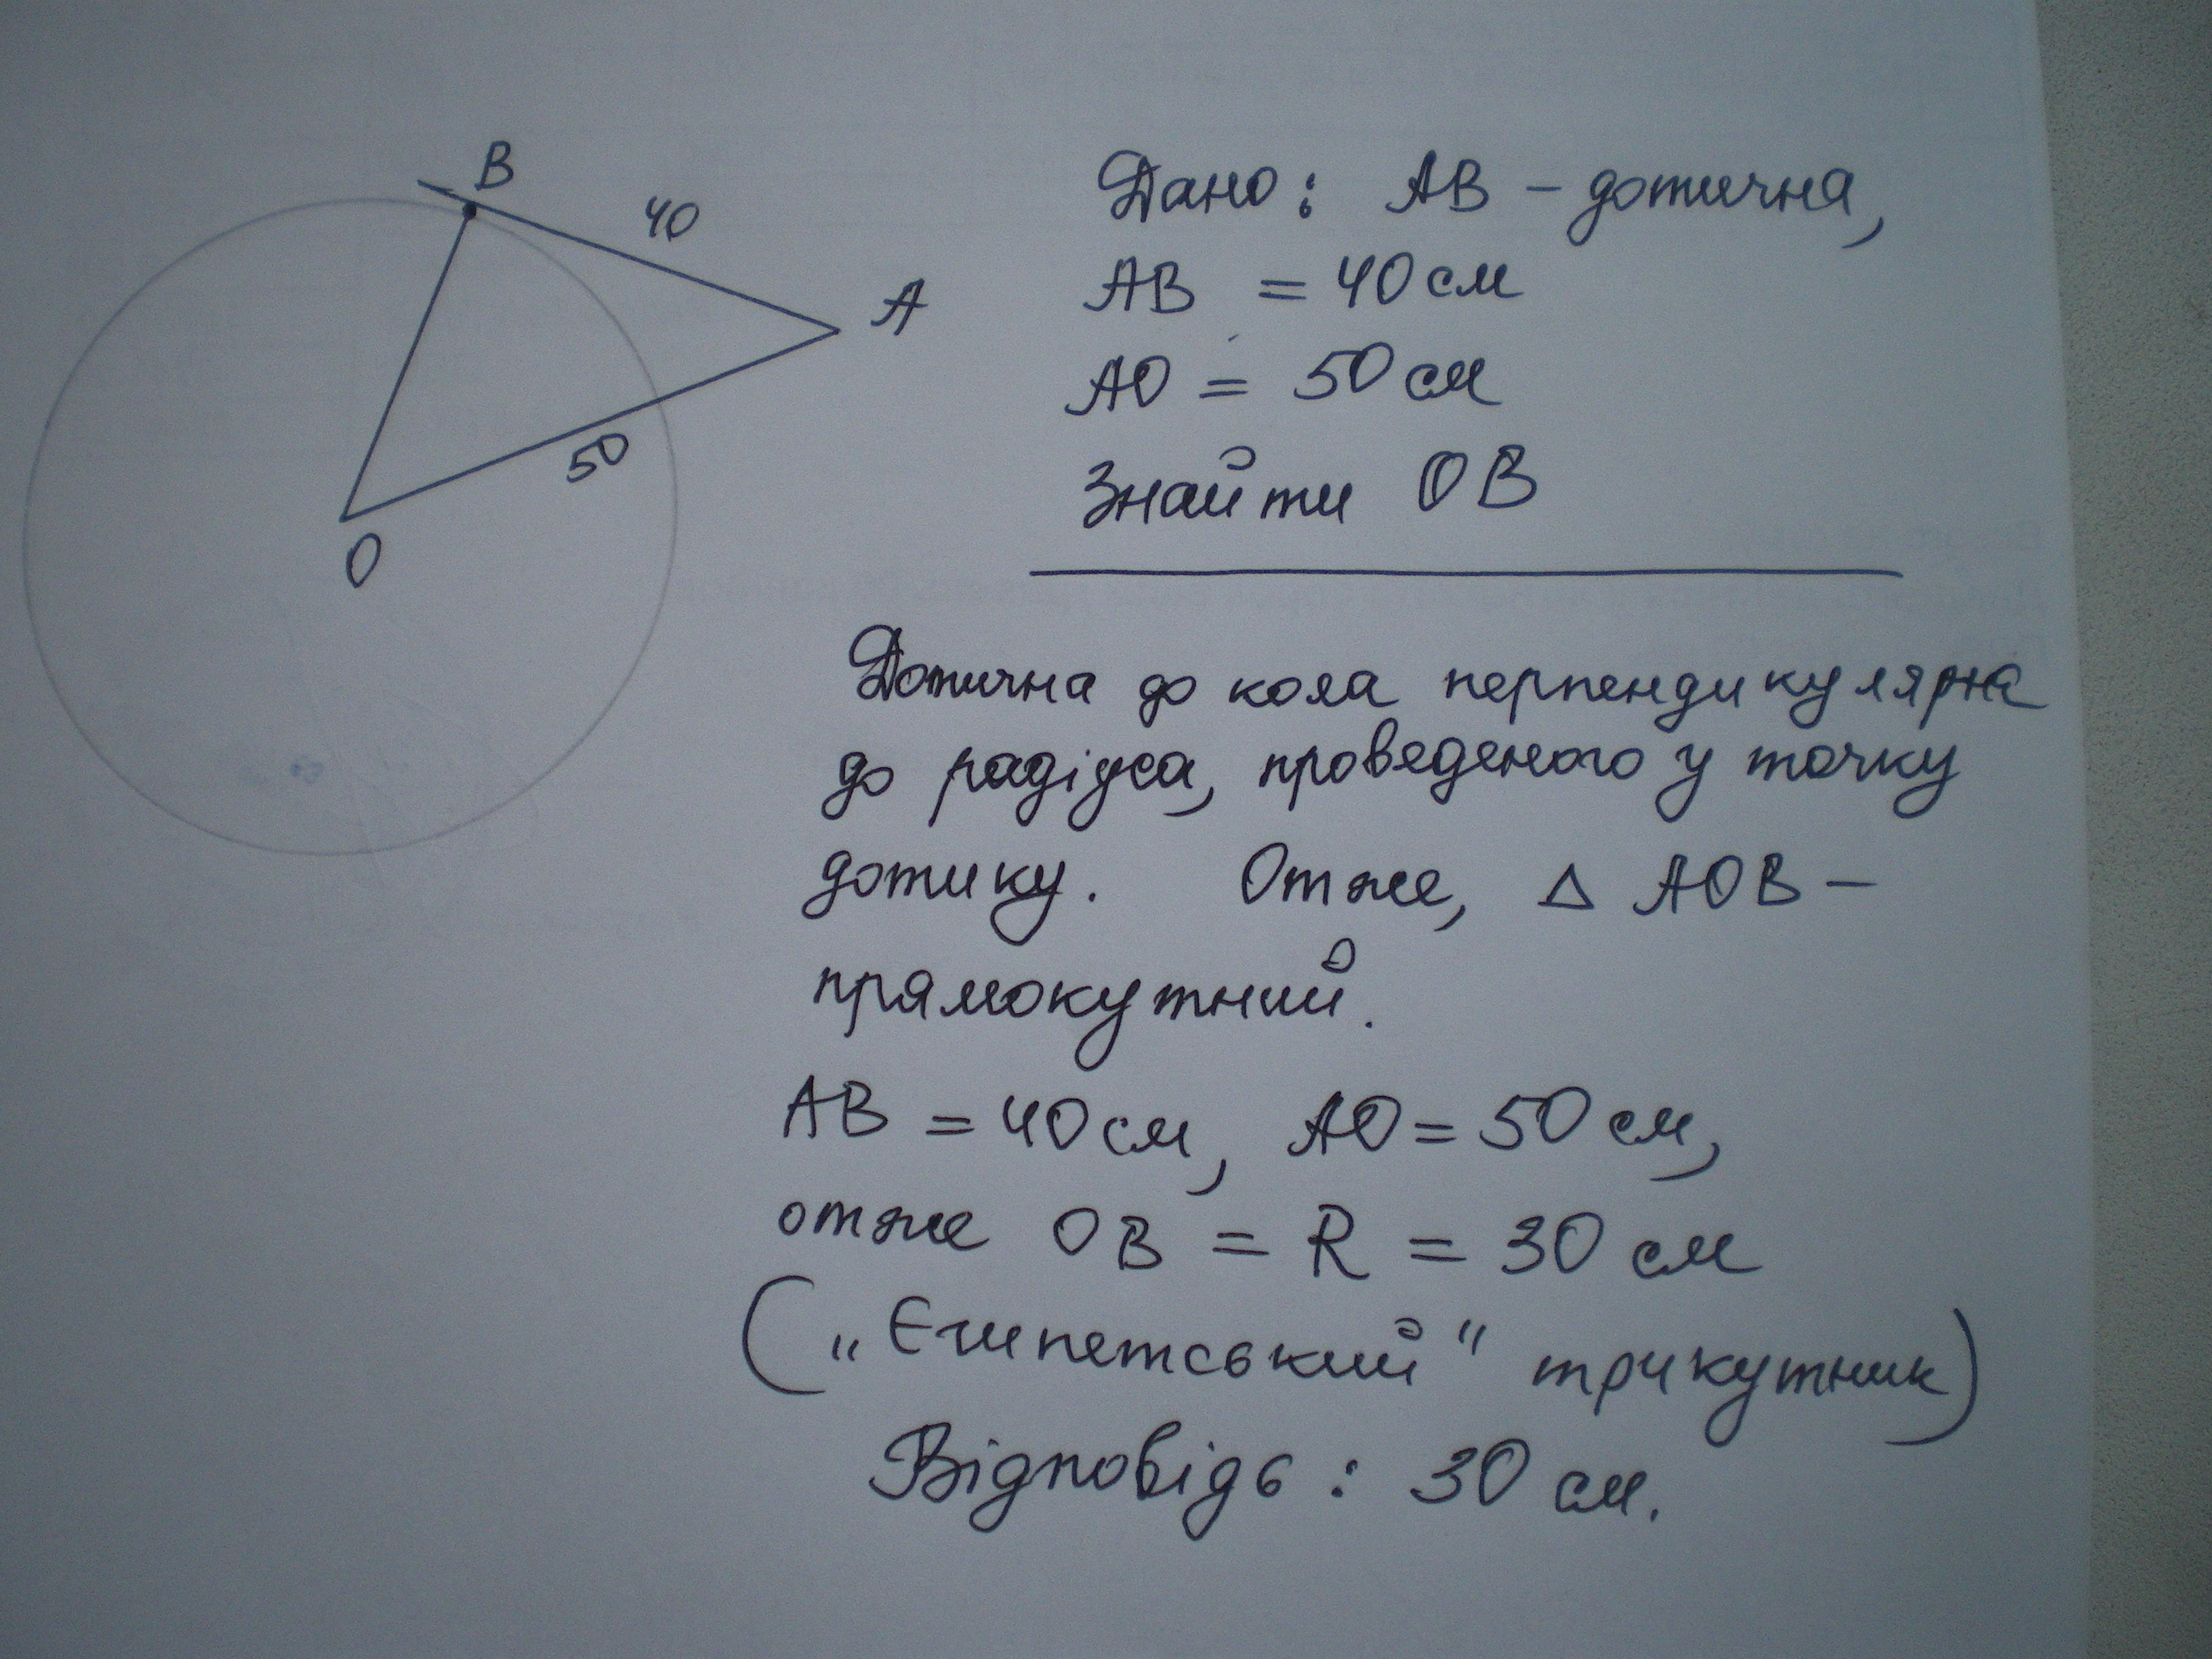 B
40
A
50
O
Дано: AB - дотична,
AB = 40 см
AO = 50 см
Знайти OB
Дотична до кола перпендикулярна
до радіуса, проведеного у точку
дотику. Отже, Δ AOB -
прямокутний.
AB = 40 см, AO = 50 см,
отже OB = R = 30 см
(„Єгипетський" трикутник)
Відповідь: 30 см.